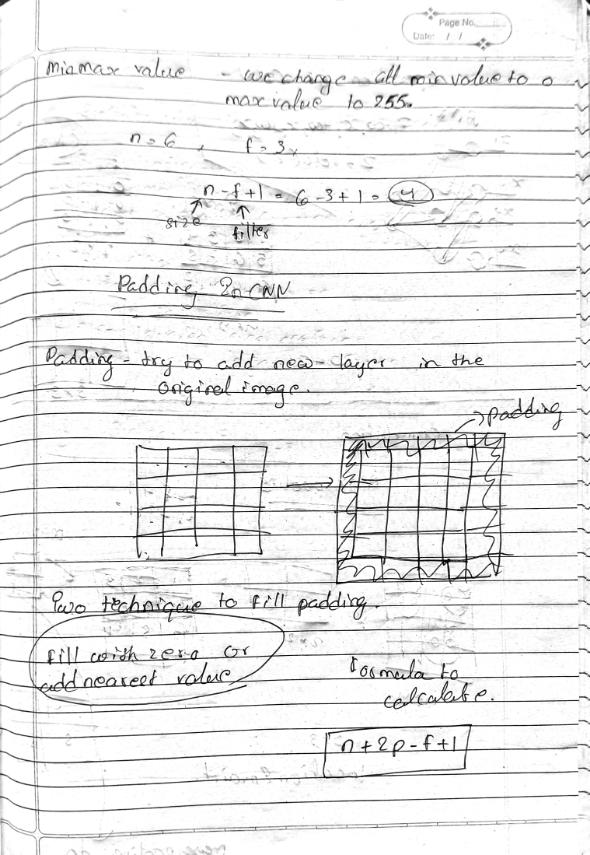 Page No.
Date: / /
Minmax value - we change all min value to 0
max value to 255.
n = 6, f = 3,
n - f + 1 = 6 - 3 + 1 = 4
size
filter
Padding In CNN
Padding - try to add new layer in the
Original image.
padding
Two technique to fill padding.
fill with zero or
add nearest value
Formula to
calculate.
n + 2p - f + 1